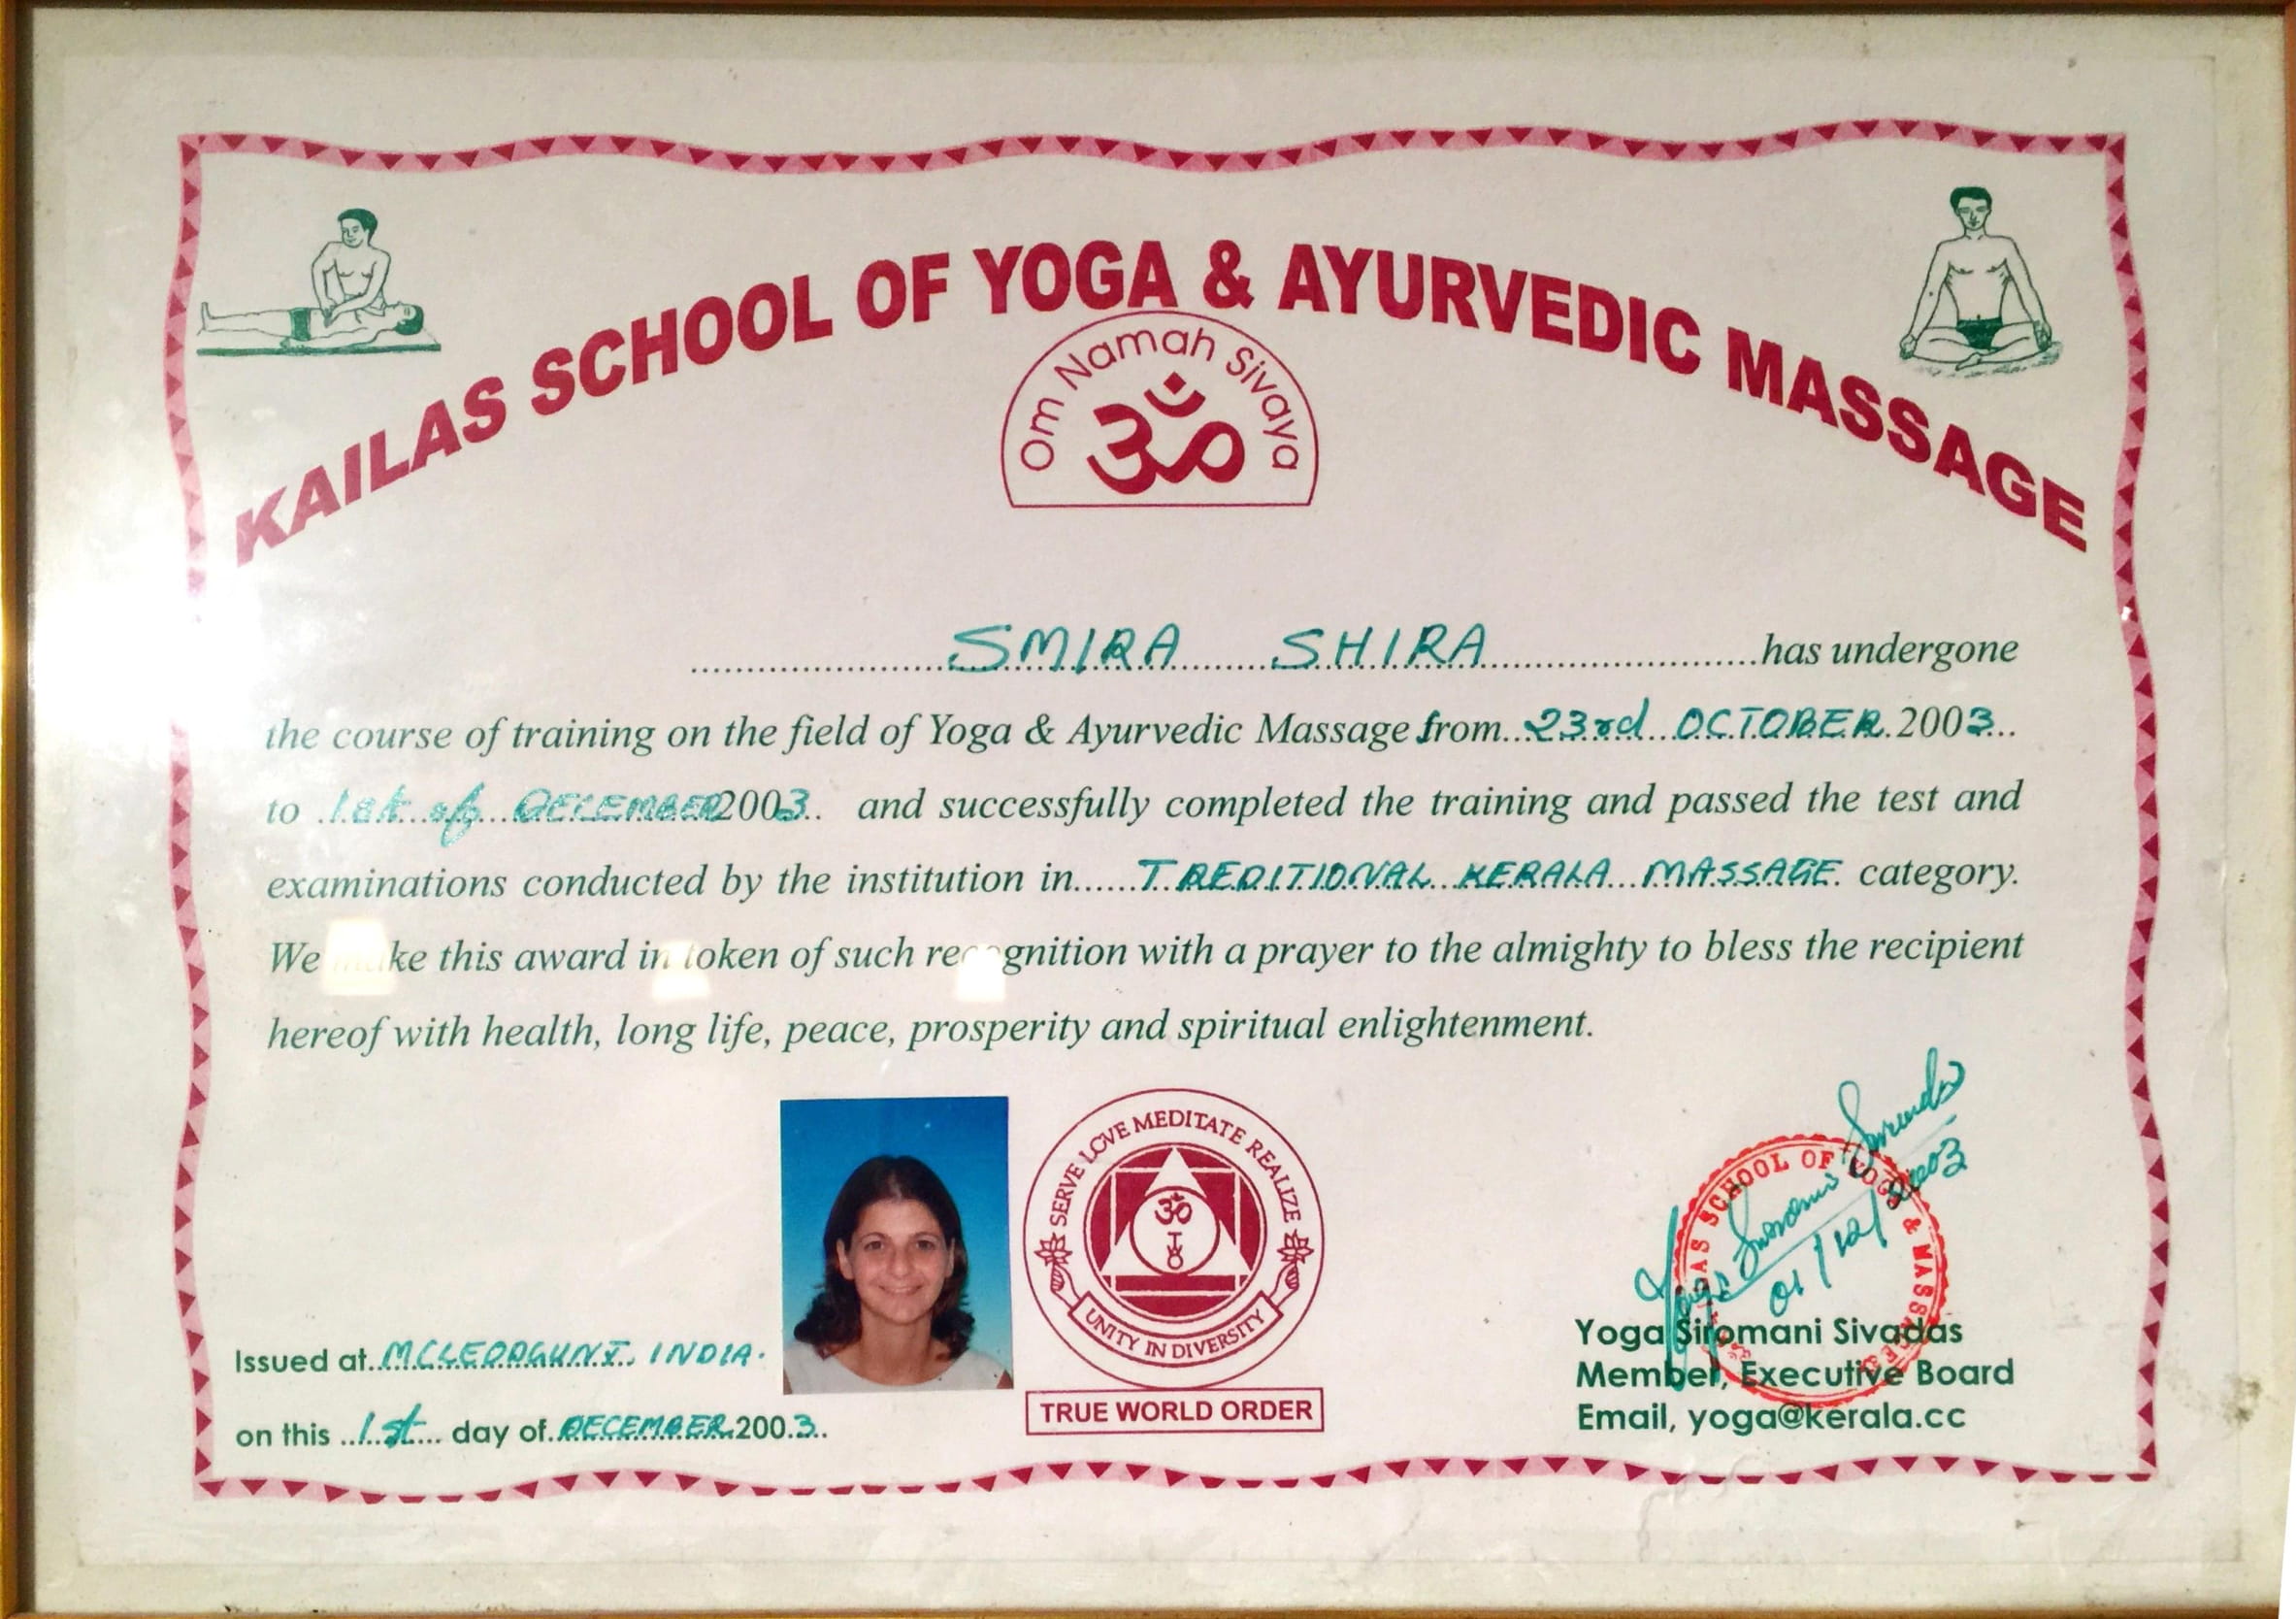 KAILAS SCHOOL OF YOGA & AYURVEDIC MASSAGE
Om Namah Sivaya
ॐ
SMIRA SHIRA has undergone
the course of training on the field of Yoga & Ayurvedic Massage from 23rd OCTOBER 2003
to 1st of DECEMBER 2003 and successfully completed the training and passed the test and
examinations conducted by the institution in TREDITIONAL KERALA MASSAGE category.
We make this award in token of such recognition with a prayer to the almighty to bless the recipient
hereof with health, long life, peace, prosperity and spiritual enlightenment.
SERVE LOVE MEDITATE REALIZE
ॐ
UNITY IN DIVERSITY
TRUE WORLD ORDER
Issued at MCLEODGUNJ, INDIA.
on this 1st day of DECEMBER 2003
SCHOOL OF YOGA & MASSAGE
01/12/2003
Yoga Siromani Sivadas
Member, Executive Board
Email, yoga@kerala.cc